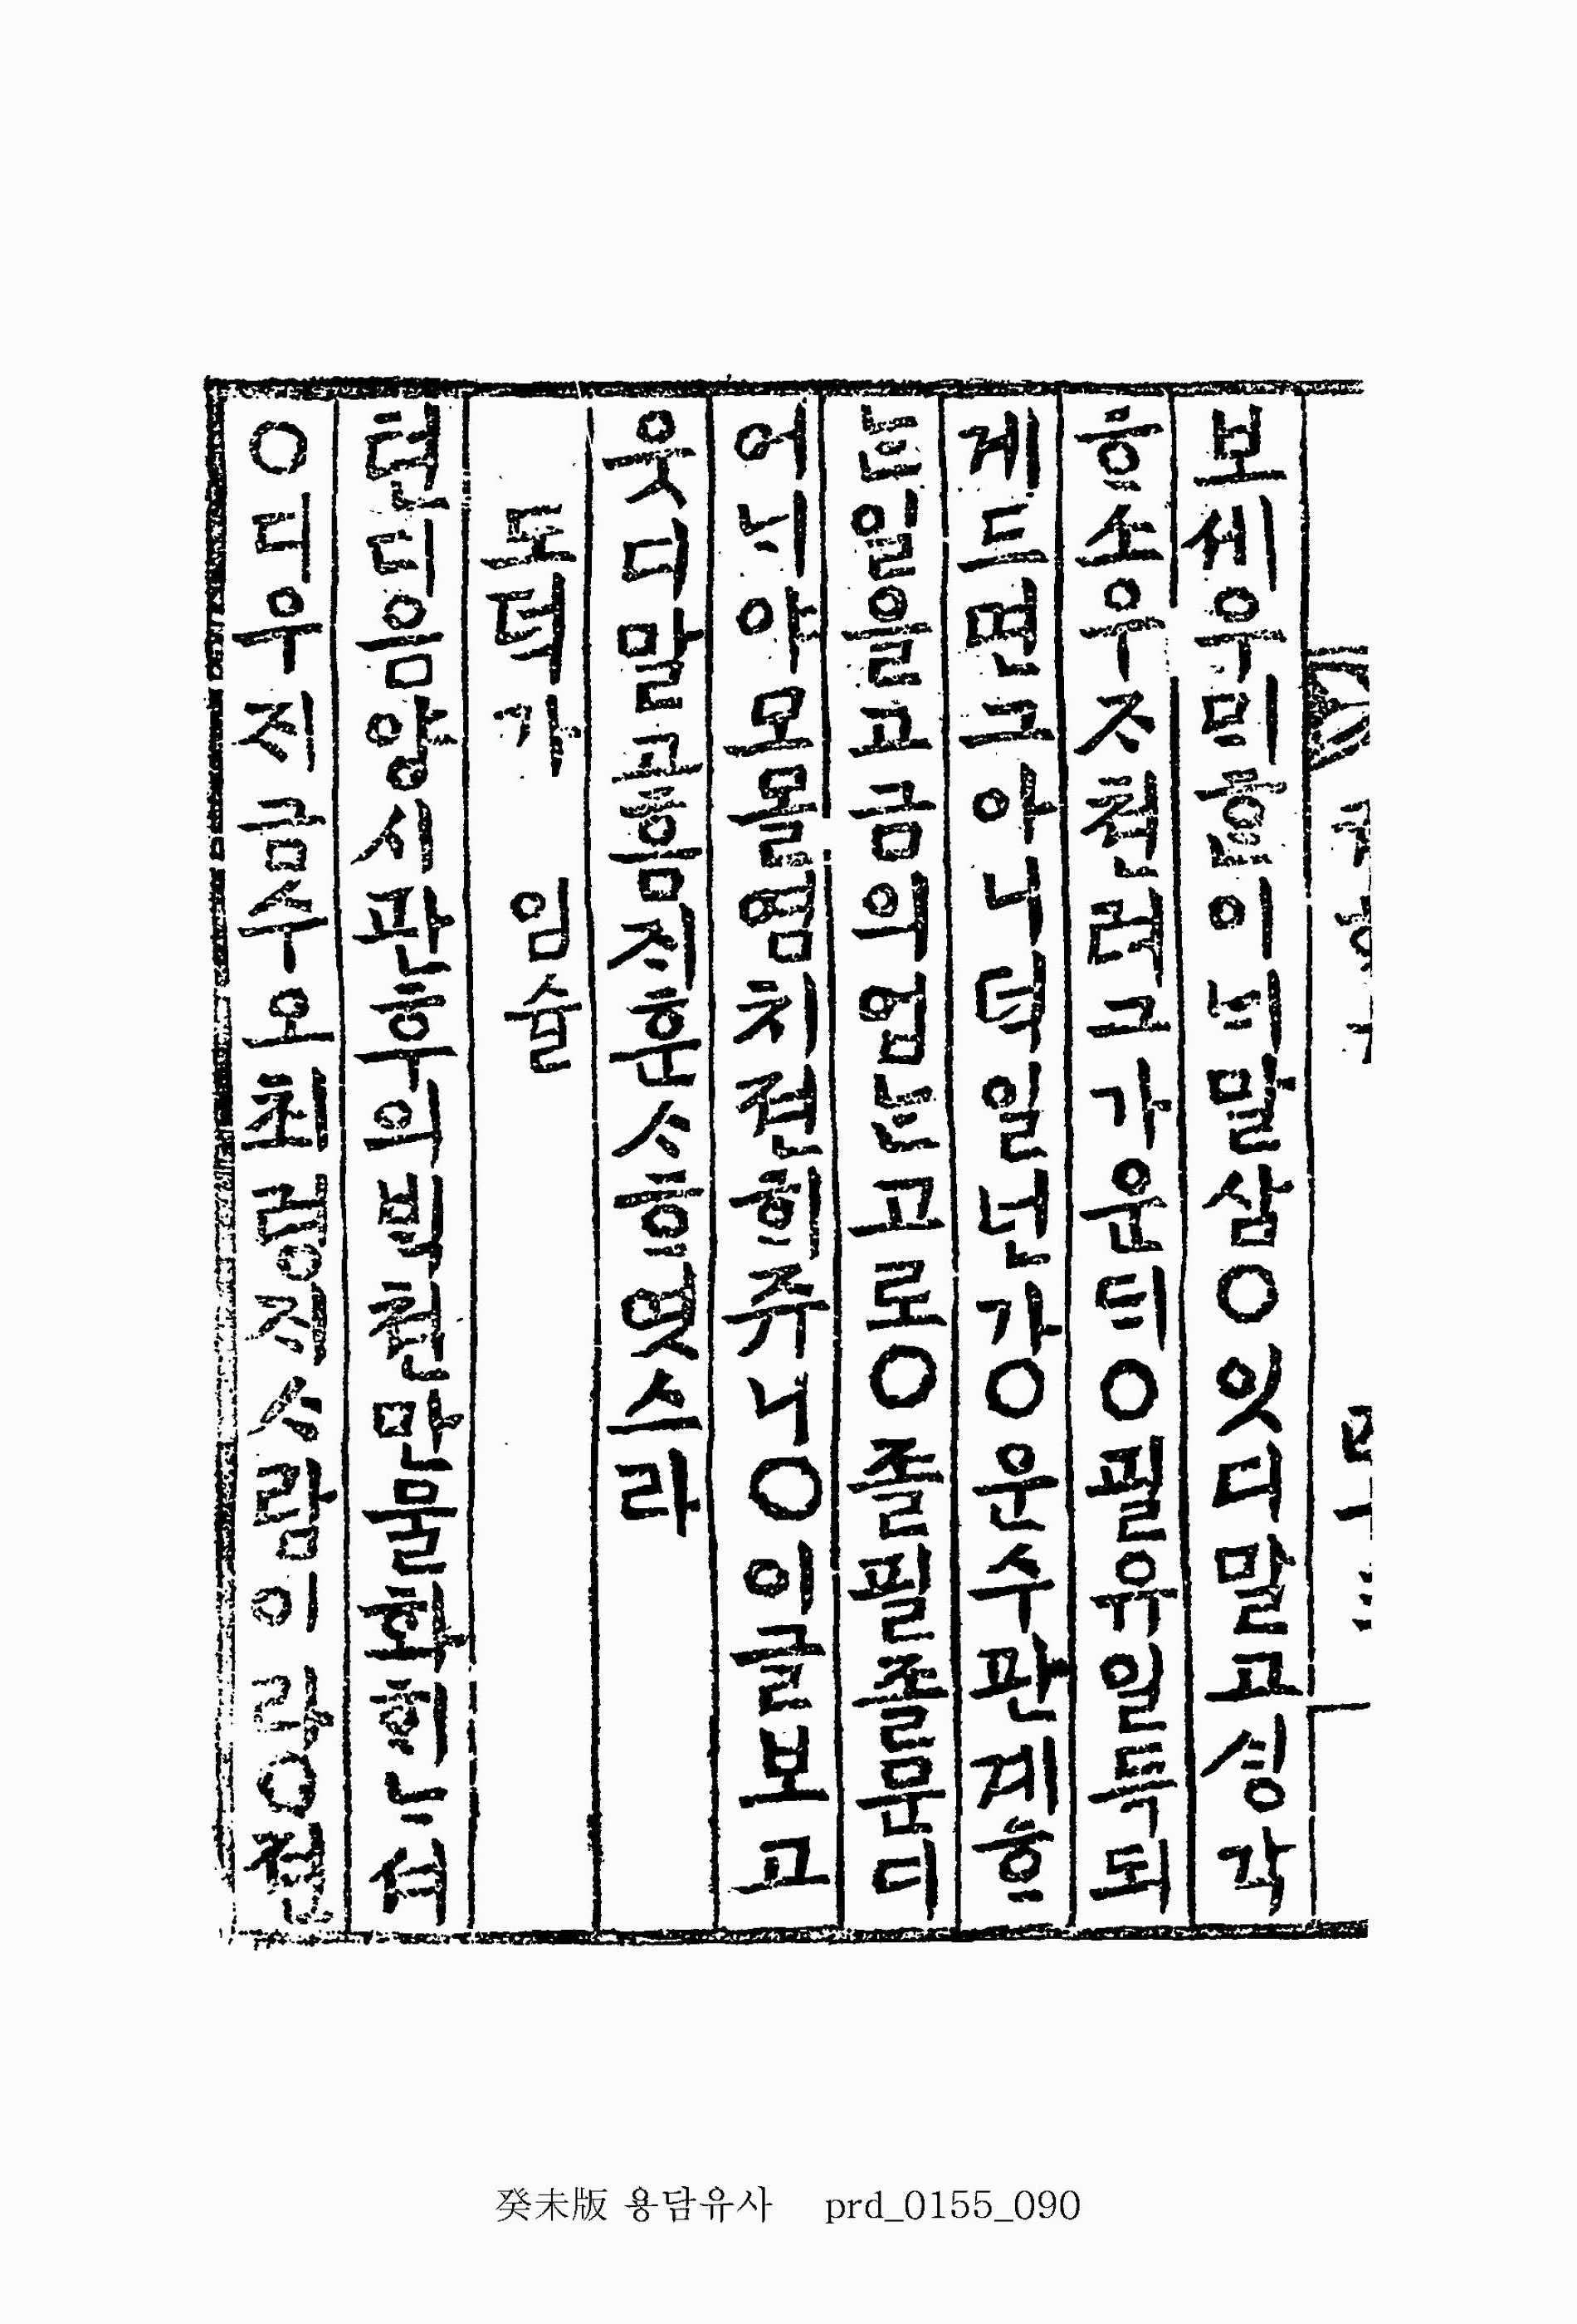 보세우ᄆᆡᄒᆞᆫ이ᄂᆡ말삼○잇디말고ᄉᆡᆼ각
ᄒᆞ소우ᄌᆞ쳔려그가운ᄃᆡ○필유일득되
게드면그아니덕일넌가○운수관계ᄒᆞ
ᄂᆞᆫ일을고금의업ᄂᆞᆫ고로○졸필졸문디
어ᄂᆡ야모몰염치젼ᄒᆡ쥬니○이글보고
웃디말고흠ᄌᆡ훈ᄉᆞᄒᆞ엿스라
도덕가 임슐
텬디음양시판후의ᄇᆡᆨ쳔만물화ᄒᆡᄂᆞ셔
○디우ᄌᆡ금수오최령ᄌᆡᄉᆞ람이라○젼
癸未版 용담유사 prd_0155_090